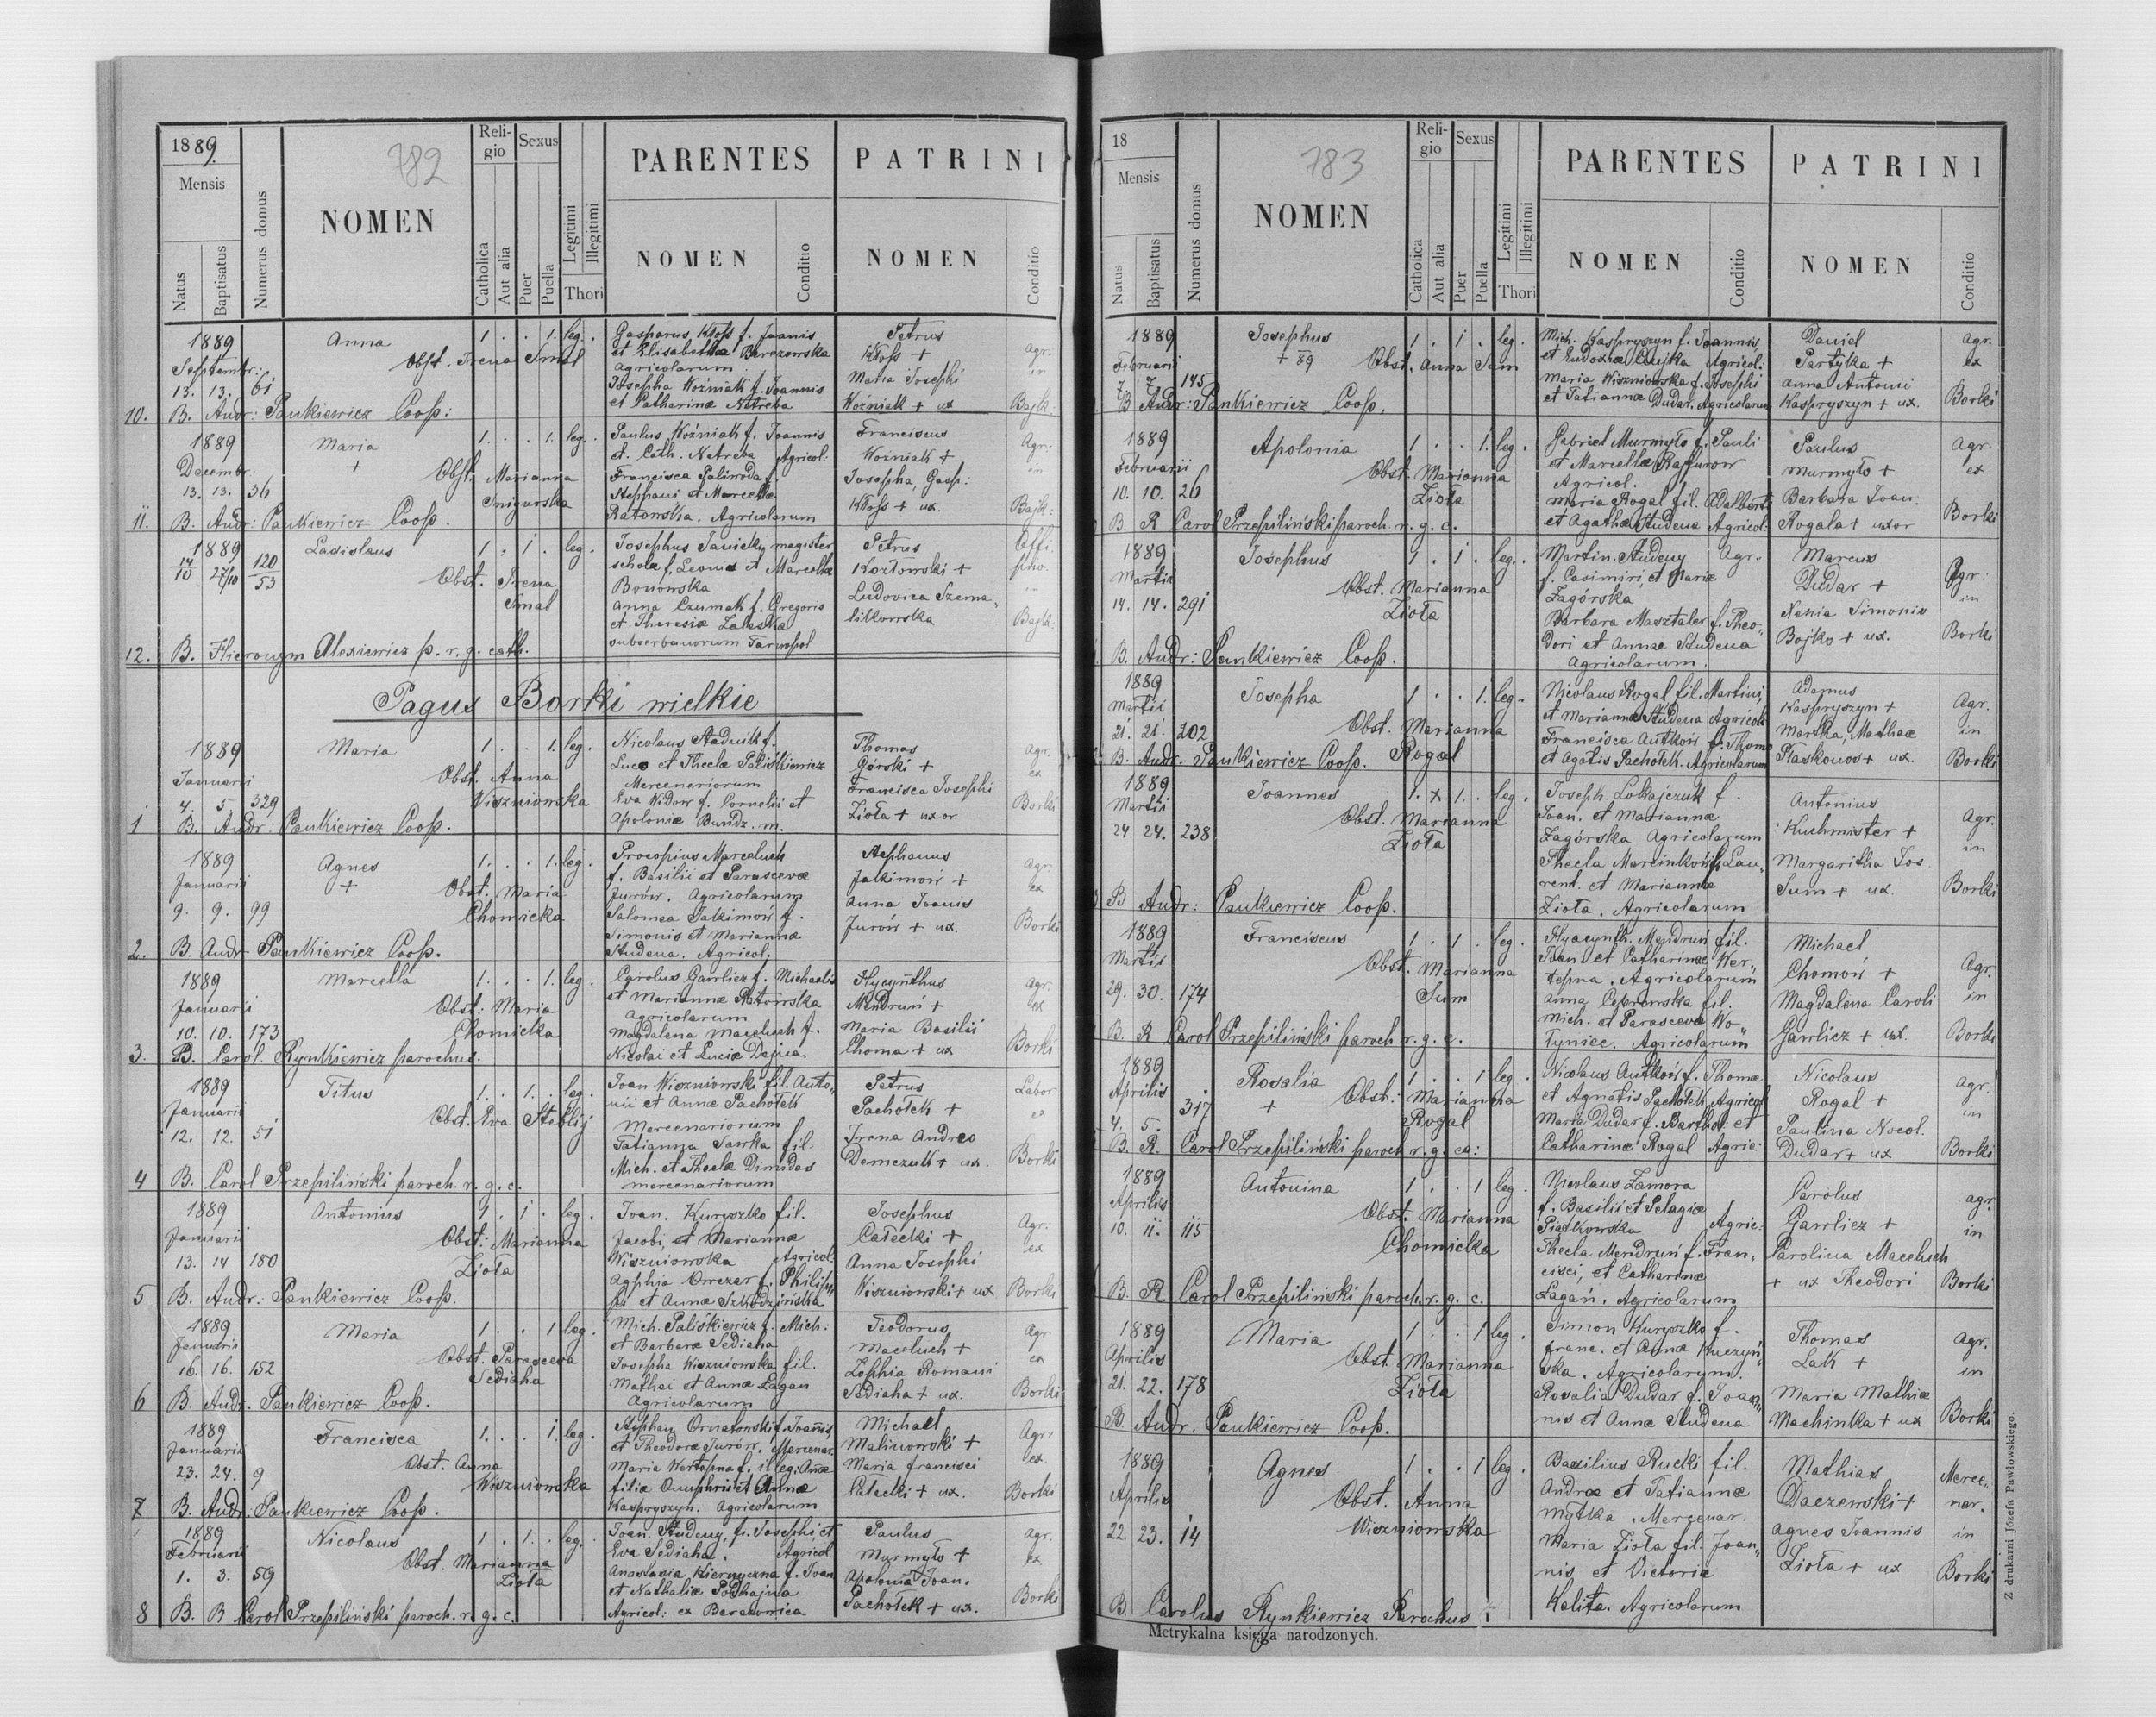 1889.
782
Mensis
Natus
Baptisatus
Numerus domus
NOMEN
Reli-
gio
Catholica
Aut alia
Sexus
Puer
Puella
Legitimi
Illegitimi
Thori
PARENTES
NOMEN
Conditio
PATRINI
NOMEN
Conditio
1889 Anna 1 . . 1. leg. Gasparus Kłoss f. Joanis Petrus Agr.
Septembr: Obst. Irena Smal et Elisabetha Berezowska Kłoss + in
13. 13. 61 Agricolarum Maria Josephi
Josepha Woźniak f. Joannis Woźniak + ux Bajk.
et Catharinæ Netreba
10. B. Andr: Pankiewicz Coop:
1889 Maria 1. . . 1. leg. Paulus Woźniak f. Joannis Franciscus Agr.
Decembr + Obst. Marianna et Cath. Netreba Agricol: Woźniak + in
13. 13. 36 Francisca f. Josepha, Gasp:
Stephani et Marcella Kłoss + ux. Bajk:
Ratowska. Agricolarum
11. B. Andr: Pankiewicz Coop.
1889 Ladislaus 1 . 1 . leg. Josephus Janicki magister Petrus
14/10 27/10 120/53 Obst. Irena scholæ f. Leonis et Marcella Kozłowski +
Smal Bonowska Ludovica Szema,
Anna Czumak f. Gregoris litkowska Bajk:
et Theresiæ Zaleska
suburbanorum Tarnopol
12. B. Hieronym Alexiewicz p. r. g. cath.
Pagus Borki wielkie
1889 Maria 1 . . 1. leg. Nicolaus Stadnik f. Thomas Agr.
Januarii Obst. Anna Lucæ et Theclæ Paliskiewicz Górski + ex
4. 5. 329 Wiszniowska Mercenariorum Francisca Josephi
Eva Widor f. Cornelii et Zioła + uxor Borki
Apoloniæ Bundz. m.
1 B. Andr: Pankiewicz Coop.
1889 Agnes 1. . . 1. leg. Procopius Marceluch Stephanus Agr.
Januarii + Obst. Maria f. Basilii et Parascevæ Jakimow + ex
9. 9. 99 Chomicka Jurów. Agricolarum Anna Joanis
Salomea Jakimów f. Jurów + ux. Borki
Simonis et Mariannæ
Studena. Agricol.
2. B. Andr Pankiewicz Coop.
1889 Marcella 1. . . 1 leg. Carolus Gawlicz f. Michaelis Hyacynthus Agr.
Januarii Obst: Maria et Mariannæ Ratowska Mendruń + ex
10. 10. 173 Chomicka Agricolarum Maria Basilii
Magdalena Maceluch f. Choma + ux Borki
Nicolai et Luciæ Dejna.
3. B. Carol. Rynkiewicz parochus.
1889 Titus 1. . 1. . leg. Joan Wiszniowski fil. Anto, Petrus Labor
Januarii Obst. Eva Steblij nii et Annæ Pachołek Pachołek + ex
12. 12. 51 Mercenariorum Irena Andreo
Tatianna Sawka fil. Demczuk + ux. Borki
Mich. et Theclæ Dimidas
mercenariorum
4 B. Carol Przepiliński paroch. r. g. c.
1889 Antonius 1 . 1 . leg. Joan. Kuryszko fil. Josephus Agr:
Januarii Obst: Marianna Jacobi, et Mariannæ Całecki + ex
13. 14 180 Zioła Wiszniowska Agricol: Anna Josephi
f. Philip, Wiszniowski + ux Borki
pi et Annæ Szkodzińska
5 B. Andr: Pankiewicz Coop.
1889 Maria 1. . . 1 leg. Mich. Paliskiewicz f. Mich: Teodorus Agr
Januarii Obst. Parasceva et Barbaræ Sediaha Maceluch + ex
16. 16. 152 Sediaha Josepha Wiszniowska fil. Zophia Romani
Mathei et Annæ Łagan Sediaha + ux. Borki
Agricolarum
6 B. Andr. Pankiewicz Coop.
1889 Francisca 1. . . 1. leg. Stephan Ornatowski f. Joannis, Michael Agr
Januarii Obst. Anna et Theodoræ Jurów. Mercenar. Malinowski + ex.
23. 24. 9 Wiszniowska Maria Wertepna f. illeg: Annæ Maria Francisci
filiæ Onuphrii et Annæ Całecki + ux. Borki
Kaspryszyn. Agricolarum
7 B. Andr. Pankiewicz Coop.
1889 Nicolaus 1 . 1. . leg. Joan. Studeny, f. Josephi, et Paulus Agr.
Februarii Obst. Marianna Eva Sediaha. Agricol. Murmyło + ex.
1. 3. 59 Zioła Anastasia f. Joan Apolonia Joan.
et Nathaliæ Podhajna Pachołek + ux. Borki
Agricol: ex Berezowica
8 B. R Carol Przepiliński paroch. r. g. c.
18
783
Mensis
Natus
Baptisatus
Numerus domus
NOMEN
Reli-
gio
Catholica
Aut alia
Sexus
Puer
Puella
Legitimi
Illegitimi
Thori
PARENTES
NOMEN
Conditio
PATRINI
NOMEN
Conditio
1889 Josephus 1 . 1 . leg. Mich. Kaspryszyn f. Joannis Daniel Agr.
Februarii + 89 Obst. Anna Sum et Eudoxiæ Dujka Agricol: Partyka + ex
7. 7. 145 Maria Wiszniowska f. Josephi Anna Antonii
et Tatiannæ Dudar. Agricolarum Kaspryszyn + ux. Borki
B Andr: Pankiewicz Coop.
1889 Apolonia 1 . . 1. leg. Gabriel Murmyło f. Pauli Paulus Agr.
Februarii Obst. Marianna et Marcellæ Murmyło + ex
10. 10. 26 Zioła Agricol. Barbara Joan.
Maria Rogal fil. Adalberti Rogala + uxor Borki
et Agathæ Studena Agricol:
B. R Carol Przepiliński paroch. r. g. c.
1889 Josephus 1 . 1 . leg. Martin. Studeny Agr. Marcus Agr:
Martii Obst. Marianna f. Casimiri, et Mariæ Dudar + in
14. 14. 291 Zioła Zagórska Nenia Simonis
Barbara Masztaler f. Theo, Bojko + ux. Borki
dori et Annæ Studena
Agricolarum.
B. Andr: Pankiewicz Coop.
1889 Josepha 1 . . 1 leg. Nicolaus Rogal fil. Martini, Adamus Agr.
Martii Obst. Marianna et Mariannæ Studena Agricol: Kaspryszyn + in
21. 21. 202 Rogal Francisca Antków f. Thomæ Martha, Mathæ
et Agatis Pachołek. Agricolarum Płaskonos + ux. Borki
B. Andr. Pankiewicz Coop.
1889 Joannes 1. x 1. . leg. Joseph. Lokajczuk f. Antonius Agr.
Martii Obst. Marianna Joan. et Mariannæ Kuchmister + in
24. 24. 238 Zioła Zagórska Agricolarum Margaritha Jos.
Thecla Marcinków f. Lau, Sum + ux. Borki
rent. et Mariannæ
Zioła. Agricolarum
B Andr: Pankiewicz Coop.
1889 Franciscus 1 . 1 . leg. Hyacynth. Mendruń fil. Michael Agr.
Martii Obst. Marianna Joan et Catharinæ Wer, Chomów + in
29. 30. 174 Sum tepna. Agricolarum Magdalena Caroli
Anna Cebrowska fil. Gawlicz + ux. Borki
Mich. et Parascevæ Wo,
łyniec. Agricolarum
B. R Carol Przepiliński paroch. r. g. c.
1889 Rosalia 1 . . 1 leg. Nicolaus Antków f. Thomæ Nicolaus Agr.
Aprilis + Obst. Marianna et Agnatis Pachołek Agricol Rogal + in
4. 5. 317 Rogal Maria Dudar f. Barthol: et Paulina Nocol.
Catharinæ Rogal Agric: Dudar + ux Borki
B. R. Carol Przepiliński paroch r. g. ca:
1889 Antonina 1 . . 1 leg. Nicolaus Zamora Carolus agr.
Aprilis Obst. Marianna f. Basilii et Pelagiæ Gawlicz + in
10. 11. 115 Chomicka Piatkowska Agric: Carolina Maceluch
Thecla Mendruń f. Fran, + ux Theodori Borki
cisci, et Catharinæ
Łagan. Agricolarum
B. R. Carol Przepiliński paroch. r. g. c.
1889 Maria 1 . . 1 leg. Simon Kuryszko f. Thomas agr.
Aprilis Obst. Marianna Franc. et Annæ Kuczyń, Lak + in
21. 22. 178 Zioła ska. Agricolarum. Maria Mathiæ
Rosalia Dudar f. Joan, Machinka + ux Borki
nis et Annæ Studena
B Andr. Pankiewicz Coop.
1889 Agnes 1 . . 1 leg. Basilius Rucki fil. Mathias Merce,
Aprilis Obst. Anna Andræ et Tatiannæ Daczewski + nar.
22. 23. 14 Wiszniowska Mytka. Mercenar. Agnes Joannis in
Maria Zioła fil. Joan, Zioła + ux Borki
nis et Victoriæ
Kalita. Agricolarum
B. Carolus Rynkiewicz Parochus
Metrykalna księga narodzonych.
Z drukarni Józefa Pawłowskiego.